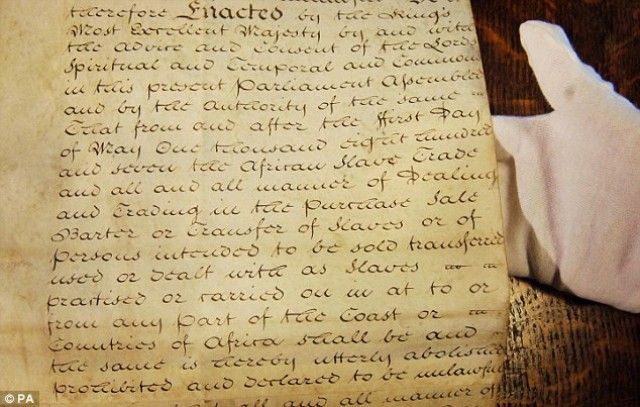 therefore Enacted by the King's
Most Excellent Majesty by and with
the Advice and Consent of the Lords
Spiritual and Temporal and Commons
in this present Parliament Assembled
and by the Authority of the same
That from and after the First Day
of May One thousand eight hundred
and seven the African Slave Trade
and all and all manner of Dealing
and Trading in the Purchase Sale
Barter or Transfer of Slaves or of
persons intended to be sold transferred
used or dealt with as Slaves
practised or carried on in at to or
from any part of the Coast or
Countries of Africa shall be and
the same is hereby utterly abolished
prohibited and declared to be unlawful
that all and all manner of
© PA